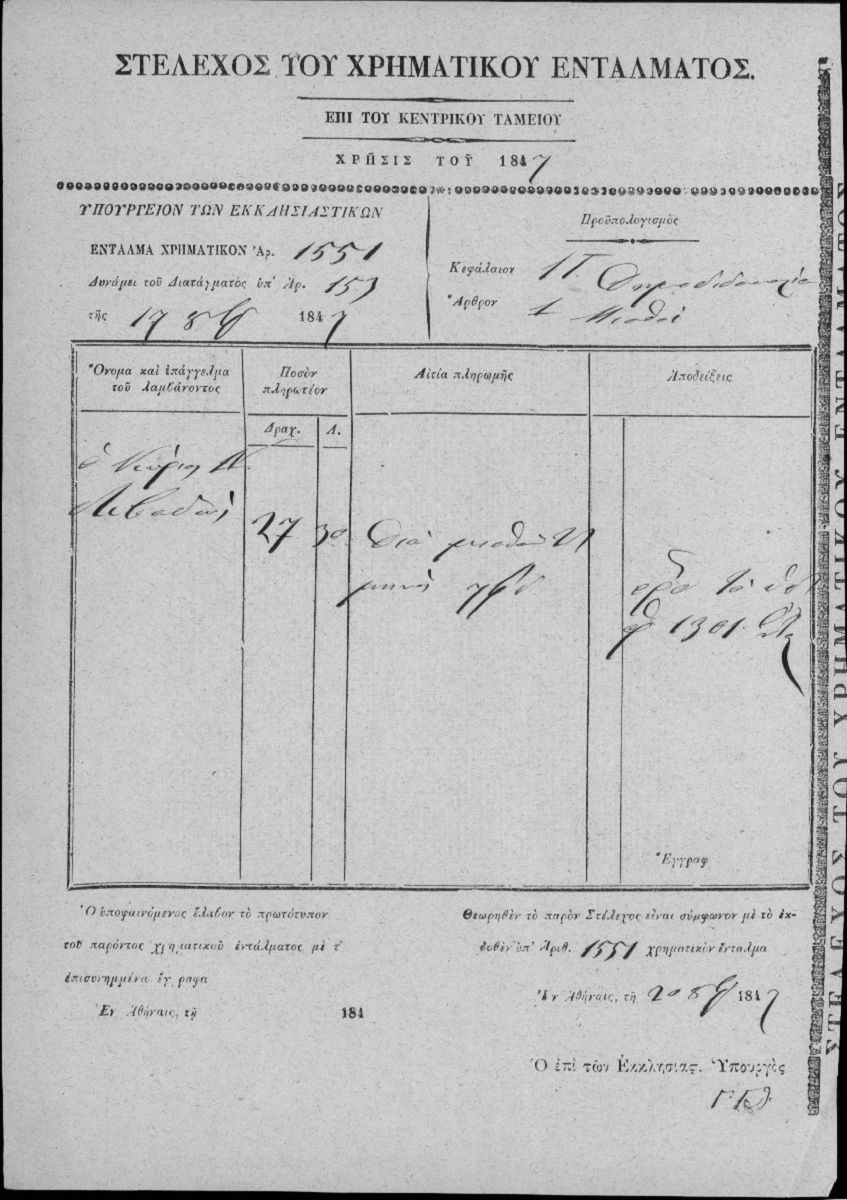 ΣΤΕΛΕΧΟΣ ΤΟΥ ΧΡΗΜΑΤΙΚΟΥ ΕΝΤΑΛΜΑΤΟΣ.
ΕΠΙ ΤΟΥ ΚΕΝΤΡΙΚΟΥ ΤΑΜΕΙΟΥ
ΧΡΗΣΙΣ ΤΟΥ 1847
ΥΠΟΥΡΓΕΙΟΝ ΤΩΝ ΕΚΚΛΗΣΙΑΣΤΙΚΩΝ
ΕΝΤΑΛΜΑ ΧΡΗΜΑΤΙΚΟΝ Ἀρ. 1551
Δυνάμει τοῦ Διατάγματος ὑπ' Ἀρ. 153
τῆς 17 8β 1847
Προϋπολογισμὸς
Κεφάλαιον ΙΓ Δημοδιδασκαλία
Ἄρθρον 1 Μισθοὶ
Ὄνομα καὶ ἐπάγγελμα
τοῦ λαμβάνοντος
Ποσὸν
πληρωτέον
Αἰτία πληρωμῆς
Ἀποδείξεις
Δραχ.
Λ.
27 30
διὰ μισθὸν
μηνὸς
1301
Ἔγγραφ
Ὁ ὑποφαινόμενος ἔλαβον τὸ πρωτότυπον
τοῦ παρόντος χρηματικοῦ ἐντάλματος μὲ τ'
ἐπισυνημμένα ἔγγραφα
Ἐν Ἀθήναις, τῇ 184
Θεωρηθὲν τὸ παρὸν Στέλεχος εἶναι σύμφωνον μὲ τὸ ἐκ-
δοθὲν ὑπ' Ἀριθ. 1551 χρηματικὸν ἔνταλμα
Ἐν Ἀθήναις, τῇ 20 8β 1847
Ὁ ἐπὶ τῶν Ἐκκλησιας. Ὑπουργὸς
ΣΤΕΛΕΧΟΣ ΤΟΥ ΧΡΗΜΑΤΙΚΟΥ ΕΝΤΑΛΜΑΤΟΣ